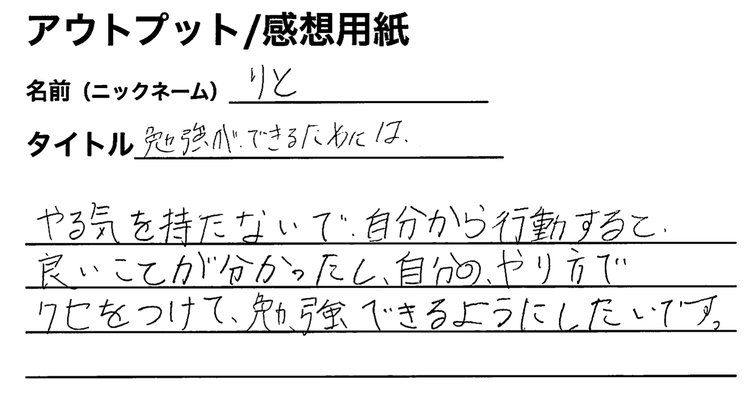 アウトプット/感想用紙
名前（ニックネーム） りと
タイトル 勉強ができるためには、
やる気を持たないで、自分から行動すると、
良いことが分かったし、自分の、やり方で
クセをつけて、勉強できるようにしたいです。